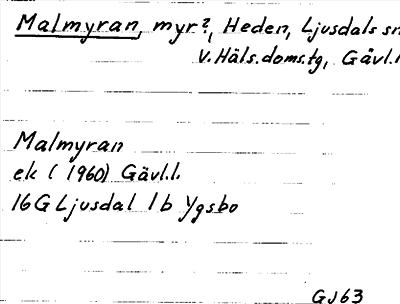 Malmyran, myr?, Heden, Ljusdals sn
V. Häls. doms.tg, Gävl.l
Malmyran
ek (1960) Gävl.l.
16G Ljusdal 1b Ygsbo
GJ63